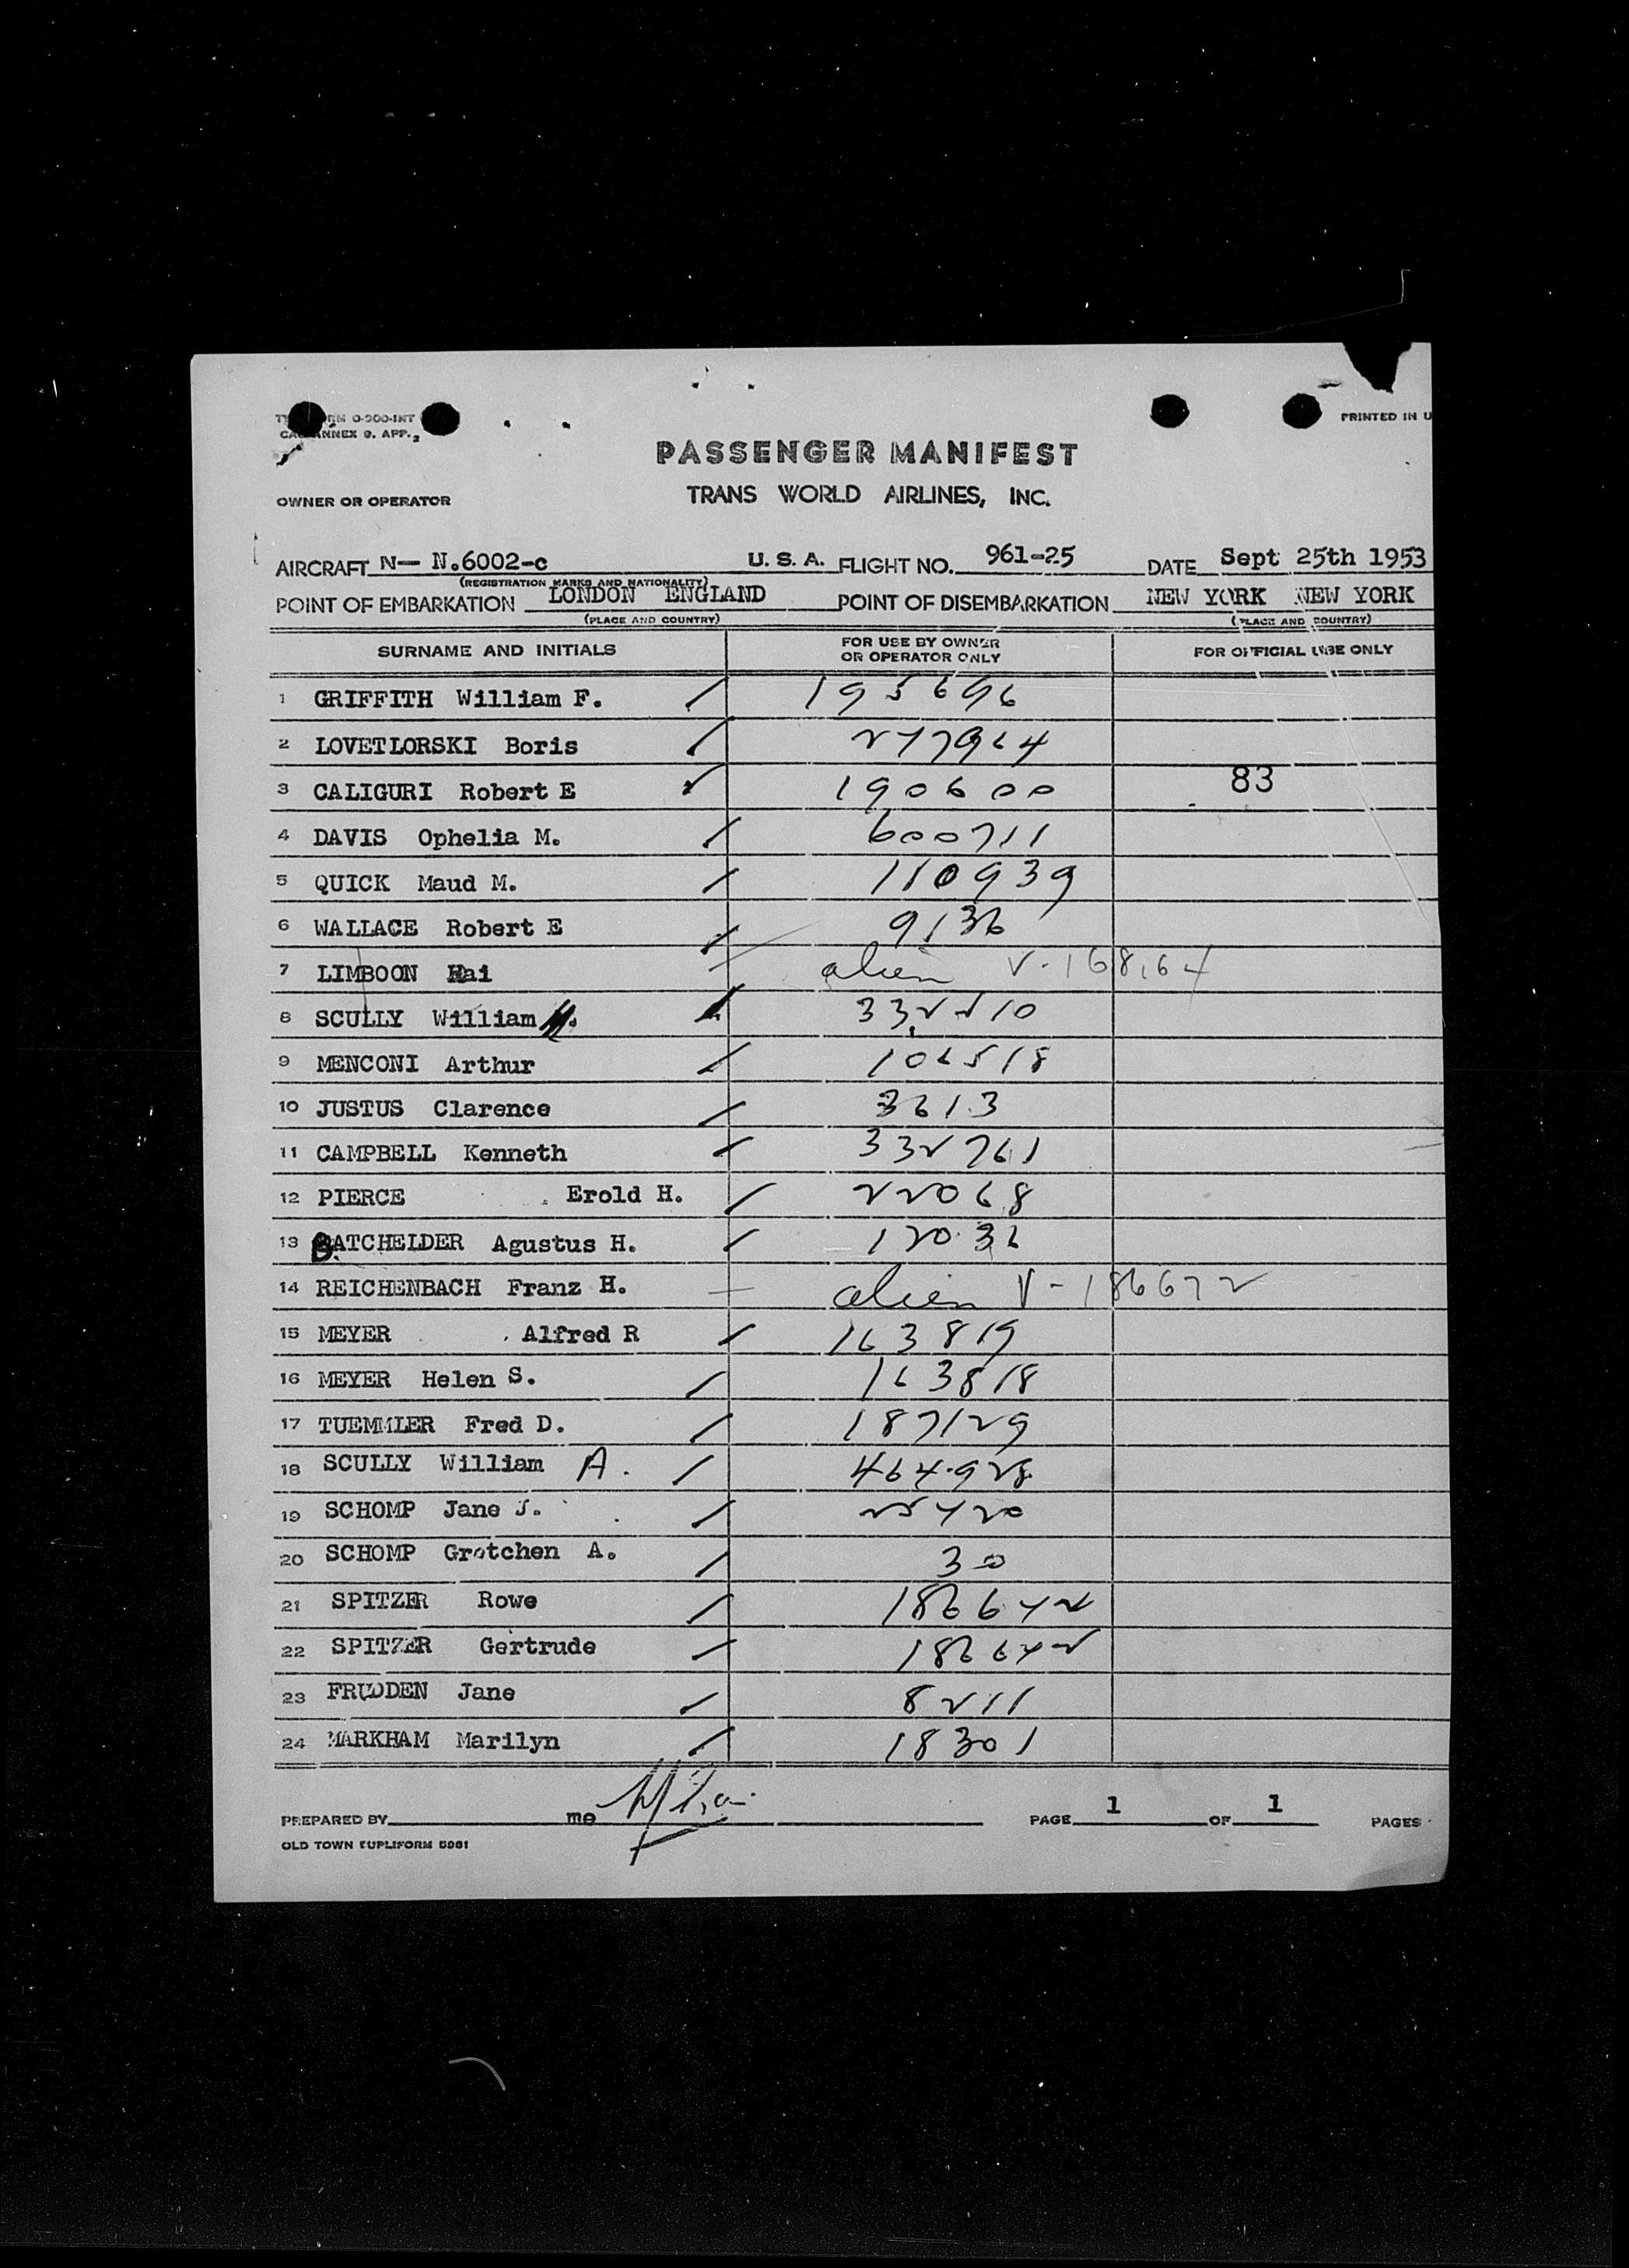 PRINTED IN U
ANNEX 9, APP. 2
PASSENGER MANIFEST
OWNER OR OPERATOR TRANS WORLD AIRLINES, INC.
AIRCRAFT N— N.6002-c U. S. A. FLIGHT NO. 961-25 DATE Sept 25th 1953
(REGISTRATION MARKS AND NATIONALITY)
POINT OF EMBARKATION LONDON ENGLAND POINT OF DISEMBARKATION NEW YORK NEW YORK
(PLACE AND COUNTRY) (PLACE AND COUNTRY)
SURNAME AND INITIALS FOR USE BY OWNER OR OPERATOR ONLY FOR OFFICIAL USE ONLY
1 GRIFFITH William F. 195696
2 LOVETLORSKI Boris
83
3 CALIGURI Robert E 190600
4 DAVIS Ophelia M. 600711
5 QUICK Maud M. 110939
6 WALLACE Robert E 9136
7 LIMBOON Hai alien
8 SCULLY William 332510
9 MENCONI Arthur 106518
10 JUSTUS Clarence 3613
11 CAMPBELL Kenneth 332761
12 PIERCE Erold H. 22068
13 BATCHELDER Agustus H. 12036
14 REICHENBACH Franz H. alien V-186672
15 MEYER Alfred R 163819
16 MEYER Helen S. 163818
17 TUEMMLER Fred D. 187129
18 SCULLY William A. 464928
19 SCHOMP Jane J. 25420
20 SCHOMP Gretchen A. 30
21 SPITZER Rowe 186642
22 SPITZER Gertrude 186642
23 FRUDDEN Jane 8211
24 MARKHAM Marilyn 18301
PREPARED BY me PAGE 1 OF 1 PAGES
OLD TOWN DUPLIFORM